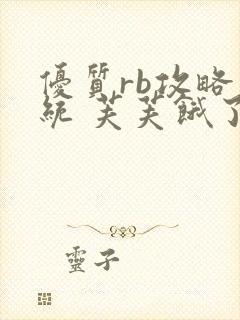 優質rb攻略
統 芙芙餓了
靈子